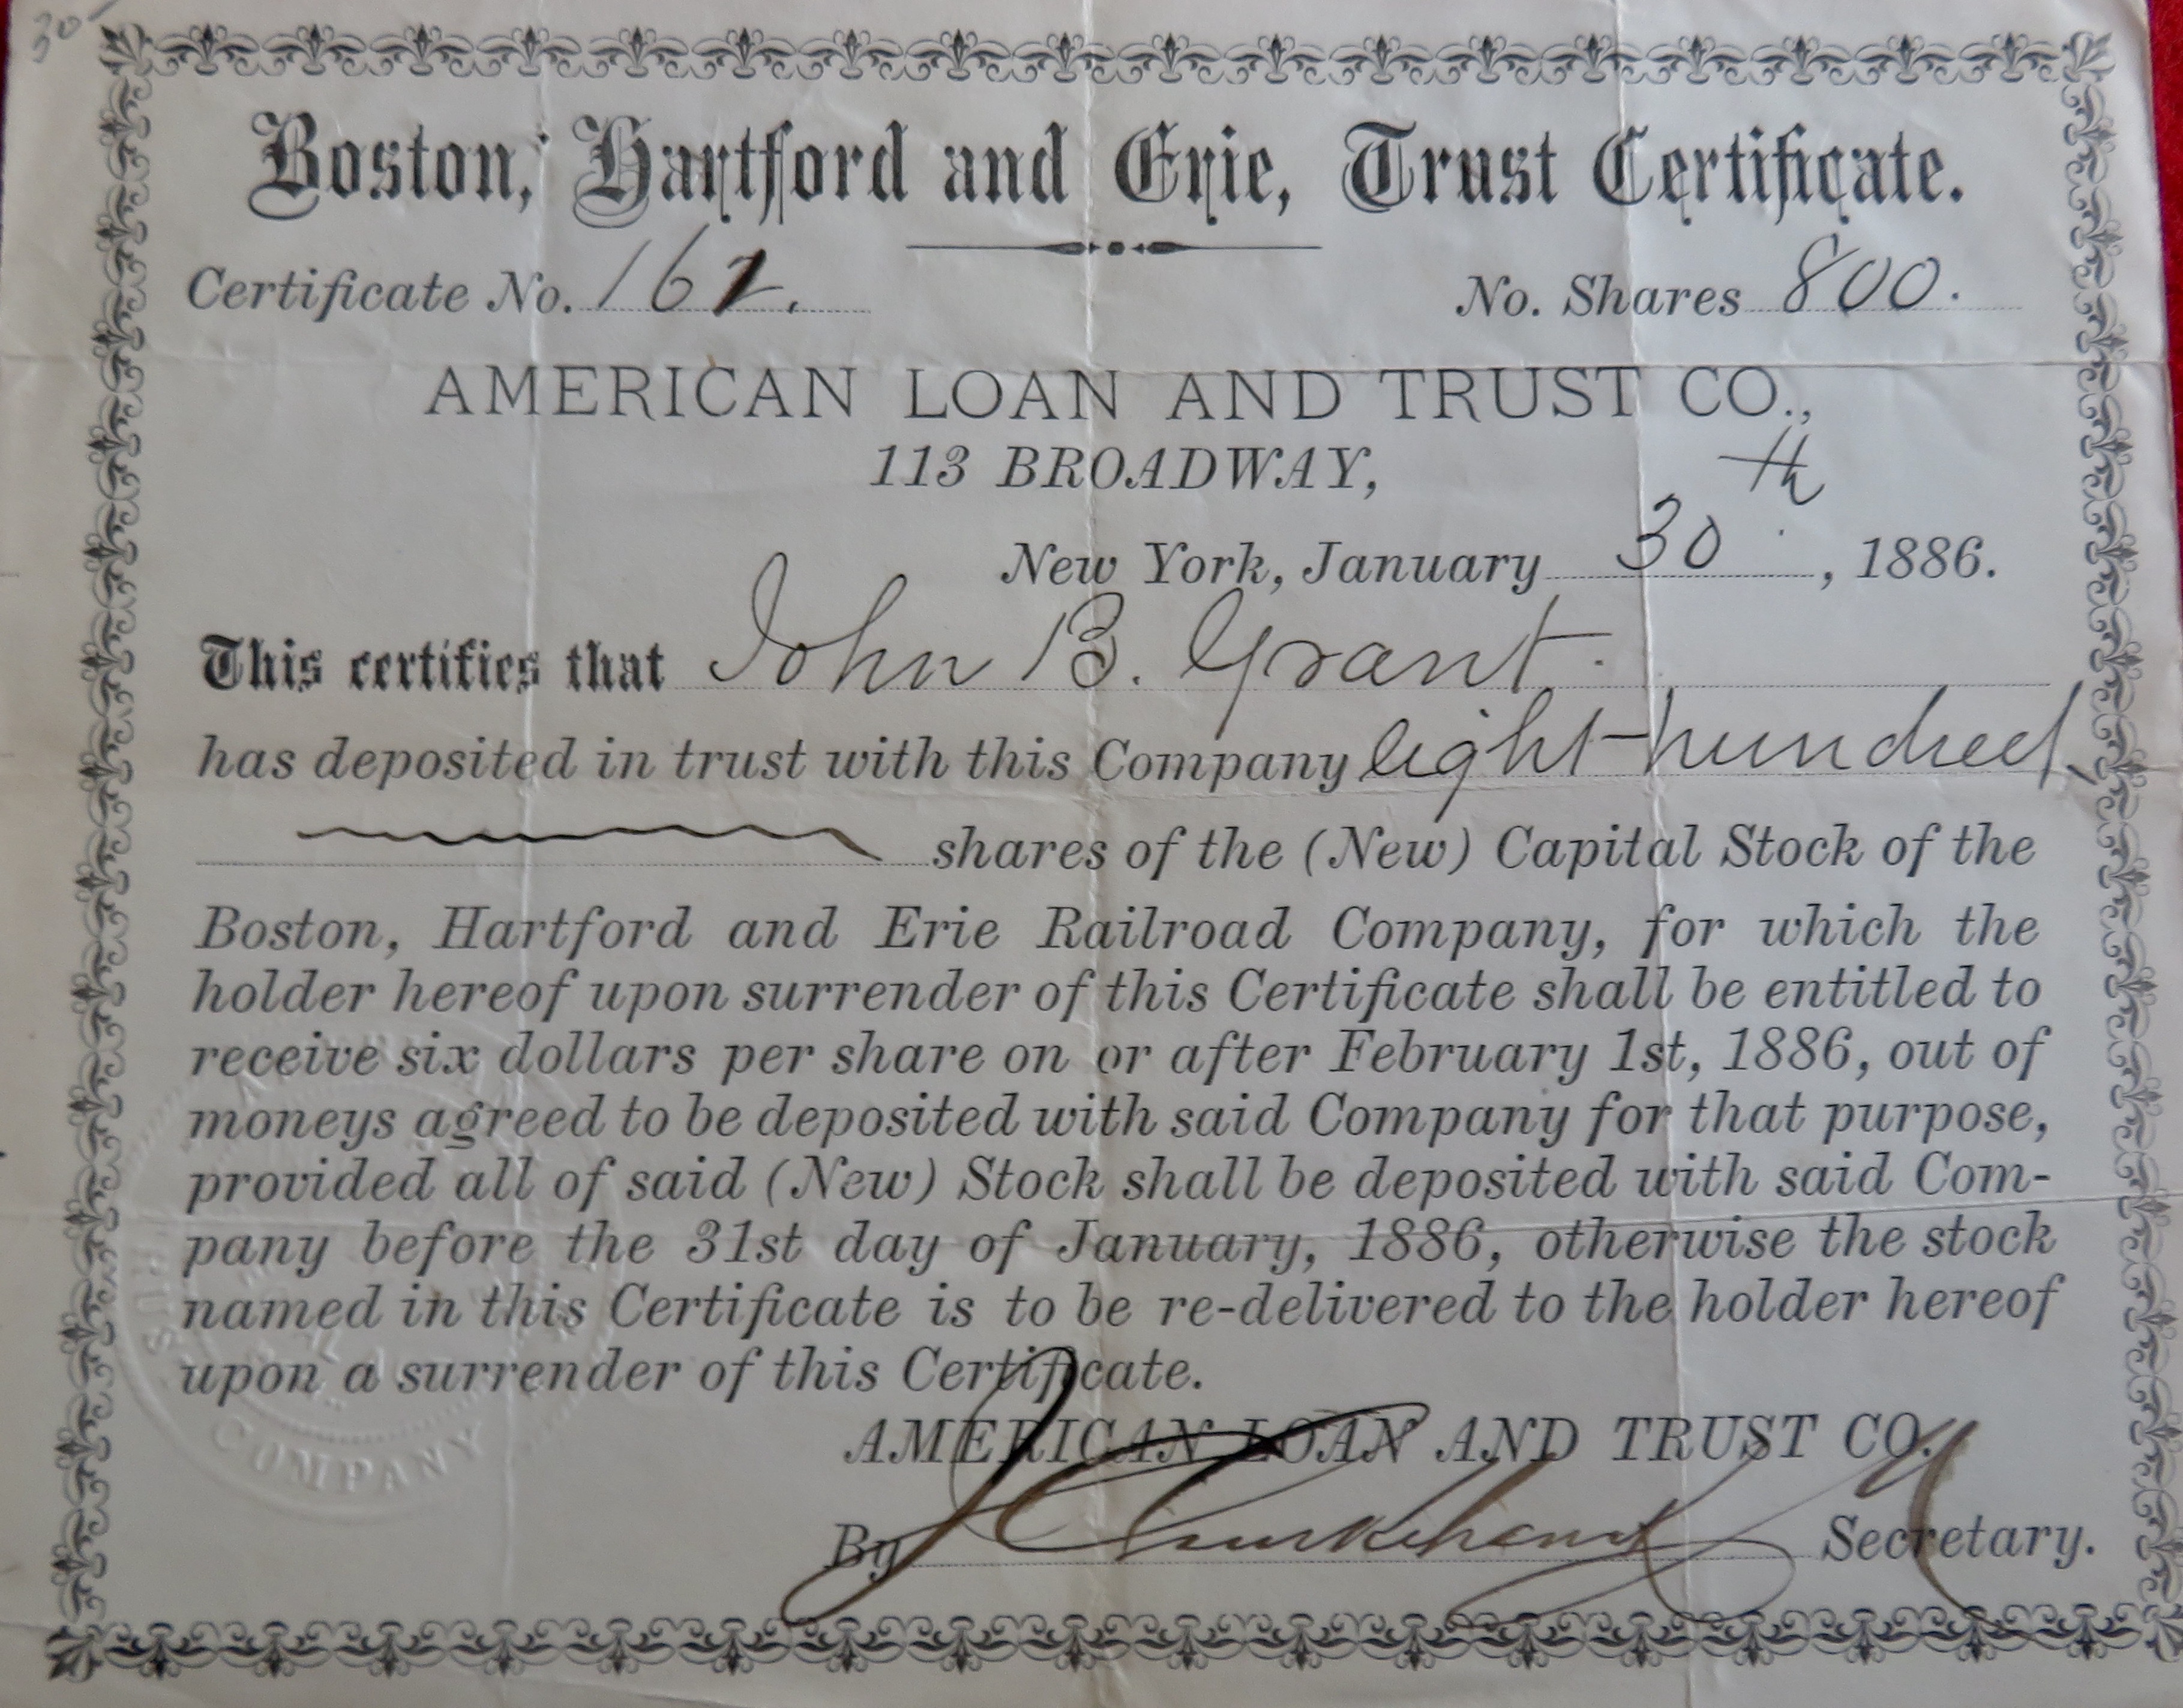 30
Boston, Hartford and Erie, Trust Certificate.
Certificate No. 162. No. Shares 800.
AMERICAN LOAN AND TRUST CO.,
113 BROADWAY,
New York, January 30th, 1886.
This certifies that John B. Grant.
has deposited in trust with this Company eight hundred
shares of the (New) Capital Stock of the
Boston, Hartford and Erie Railroad Company, for which the
holder hereof upon surrender of this Certificate shall be entitled to
receive six dollars per share on or after February 1st, 1886, out of
moneys agreed to be deposited with said Company for that purpose,
provided all of said (New) Stock shall be deposited with said Com-
pany before the 31st day of January, 1886, otherwise the stock
named in this Certificate is to be re-delivered to the holder hereof
upon a surrender of this Certificate.
COMPANY
AMERICAN LOAN AND TRUST CO.
By Secretary.